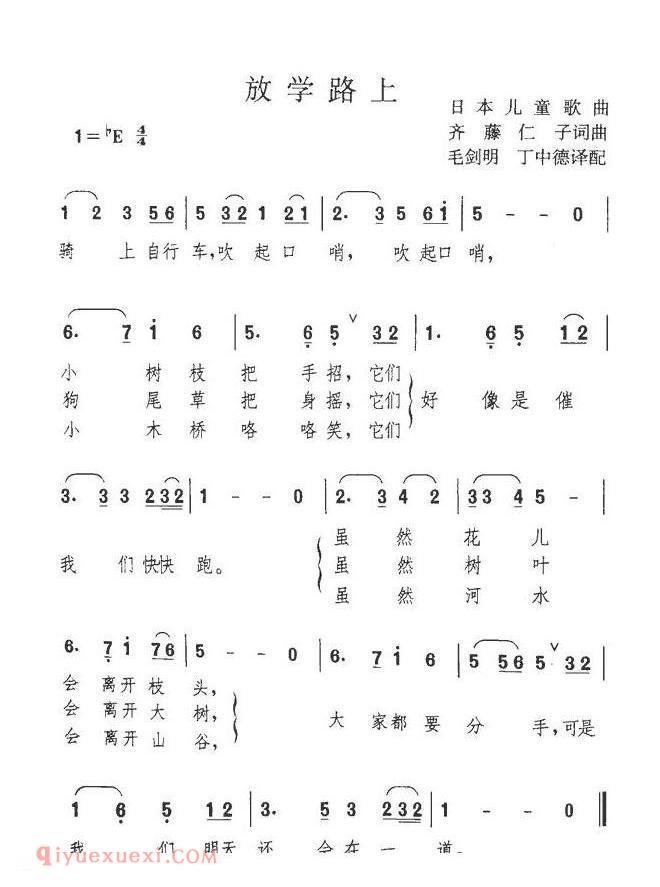 放学路上
日本儿童歌曲
1=♭E 4/4
齐藤仁子词曲
毛剑明 丁中德译配
1 2 3 56 | 5 32 1 21 | 2. 3 5 6i | 5 - - 0 |
骑 上 自行 车,吹 起 口 哨, 吹 起口 哨,
6. 7 i 6 | 5. 6 5 ∨ 32 | 1. 6 5 12 |
小 树 枝 把 手 招, 它们
狗 尾 草 把 身 摇, 它们 好 像 是 催
小 木 桥 咯 咯 笑, 它们
3. 3 3 232 | 1 - - 0 | 2. 3 4 2 | 33 4 5 - |
虽 然 花 儿
我 们 快快 跑。 虽 然 树 叶
虽 然 河 水
6. 7 i 76 | 5 - - 0 | 6. 7 i 6 | 5 56 5 ∨ 32 |
会 离开 枝 头,
会 离开 大 树, 大 家都 要 分 手,可是
会 离开 山 谷,
1 6 5 12 | 3. 5 3 232 | 1 - - 0 ‖
我 们 明天 还 会 在 一 道。
qiyuexuexi.com